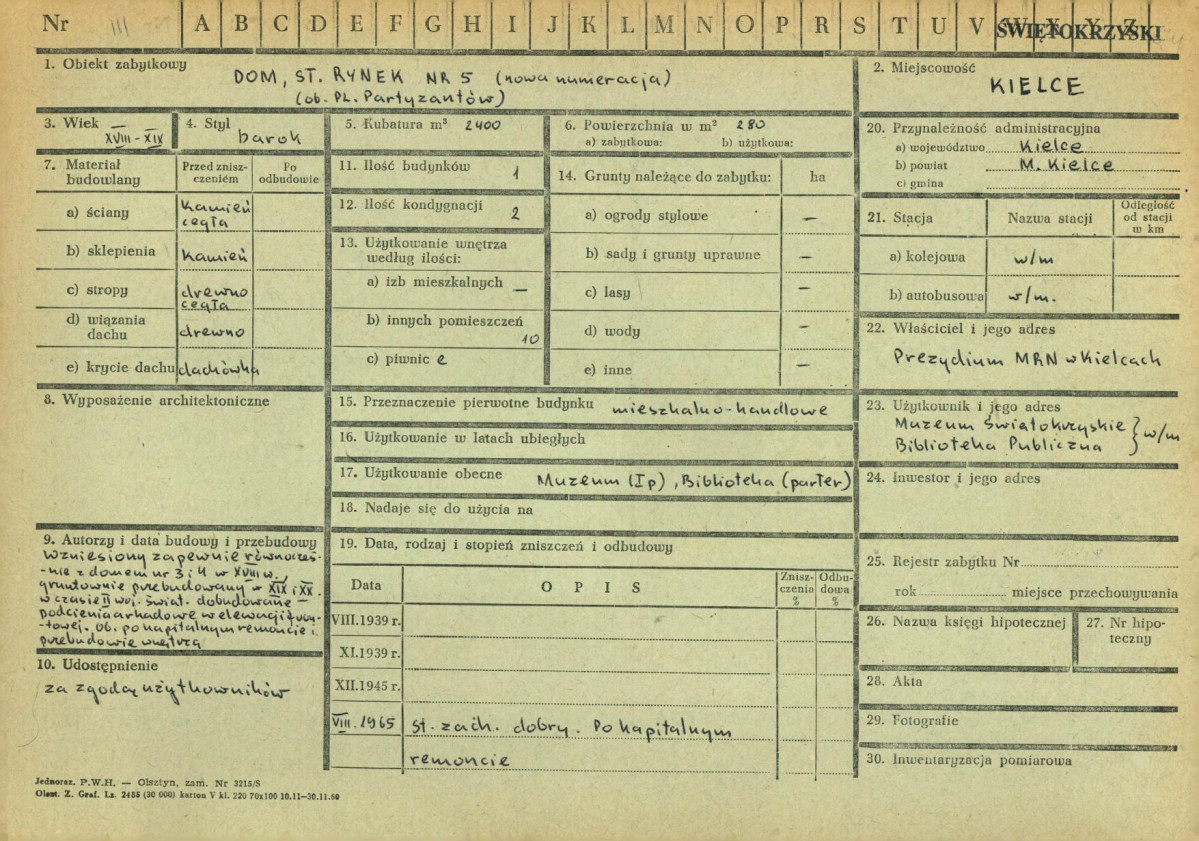 Nr III A B C D E F G H I J K L M N O P R S T U V W X Y Z
ŚWIĘTOKRZYSKI
1. Obiekt zabytkowy
DOM, ST. RYNEK NR 5 (nowa numeracja)
(ob. PL. Partyzantów)
2. Miejscowość
KIELCE
3. Wiek
XVIII - XIX
4. Styl
barok
5. Kubatura m³ 2400
6. Powierzchnia w m² 280
a) zabytkowa: b) użytkowa:
20. Przynależność administracyjna
a) województwo Kielce
b) powiat M. Kielce
c) gmina
7. Materiał budowlany
Przed znisz-
czeniem
Po
odbudowie
a) ściany kamień
cegła
b) sklepienia kamień
c) stropy drewno
cegła
d) wiązania
dachu drewno
e) krycie dachu dachówka
11. Ilość budynków 1
12. Ilość kondygnacji 2
13. Użytkowanie wnętrza
według ilości:
a) izb mieszkalnych —
b) innych pomieszczeń
10
c) piwnic e
14. Grunty należące do zabytku: ha
a) ogrody stylowe —
b) sady i grunty uprawne —
c) lasy —
d) wody —
e) inne —
21. Stacja Nazwa stacji
Odległość
od stacji
w km
a) kolejowa w/m
b) autobusowa w/m.
22. Właściciel i jego adres
Prezydium MRN w Kielcach
8. Wyposażenie architektoniczne
15. Przeznaczenie pierwotne budynku mieszkalno-handlowe
16. Użytkowanie w latach ubiegłych
17. Użytkowanie obecne Muzeum (Ip), Biblioteka (parter)
18. Nadaje się do użycia na
23. Użytkownik i jego adres
Muzeum Światokrzyskie
Biblioteka Publiczna } w/m
24. Inwestor i jego adres
9. Autorzy i data budowy i przebudowy
Wzniesiony zapewnie równocześ-
-nie z domem nr 3 i 4 w XVIII w.,
gruntownie przebudowany w XIX i XX.
w czasie II woj. świat. dobudowane
podcienia arkadowe w elewacji fron-
-towej. Ob. po kapitalnym remoncie i
przebudowie wnętrza
10. Udostępnienie
za zgodą użytkowników
19. Data, rodzaj i stopień zniszczeń i odbudowy
Data OPIS
Znisz-
czenia
%
Odbu-
dowa
%
VIII.1939 r.
XI.1939 r.
XII.1945 r.
VIII.1965 st. zach. dobry. Po kapitalnym
remoncie
25. Rejestr zabytku Nr
rok miejsce przechowywania
26. Nazwa księgi hipotecznej
27. Nr hipo-
teczny
28. Akta
29. Fotografie
30. Inwentaryzacja pomiarowa
Jednoraz. P.W.H. — Olsztyn, zam. Nr 3215/S
Olszt. Z. Graf. Lz. 2485 (30 000) karton V kl. 220 70x100 10.11—30.11.60